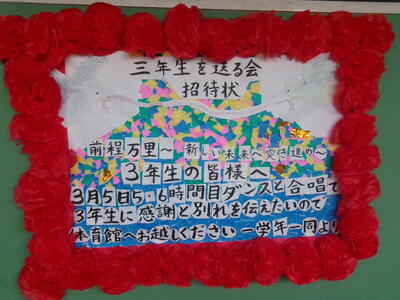 三年生を送る会
招待状
前程万里～新しい未来へ突き進め～
3年生の皆様へ
3月5日5・6時間目ダンスと合唱で
3年生に感謝と別れを伝えたいので
体育館へお越しください 一学年一同より